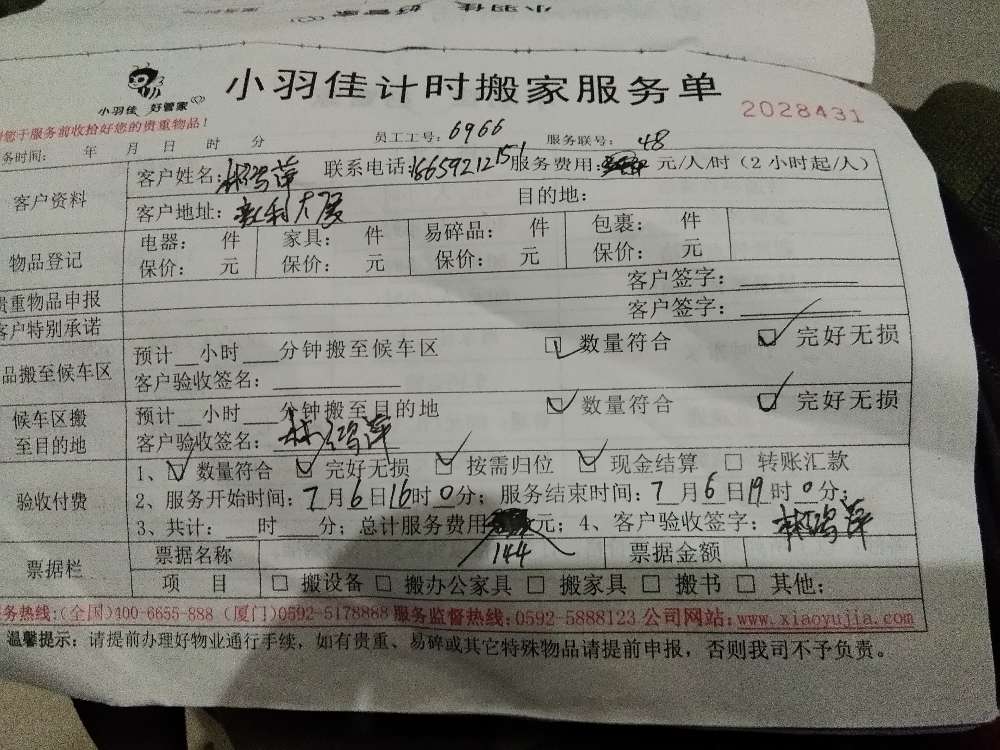 小羽佳 好管家
小羽佳 好管家
小羽佳计时搬家服务单
2028431
您于服务前收拾好您的贵重物品!
务时间: 年 月 日 时 分 员工工号:6966 服务联号: 48
客户资料 客户姓名: 联系电话:16659212151 服务费用: 元/人/时(2小时起/人)
客户地址: 大厦 目的地:
物品登记 电器: 件 家具: 件 易碎品: 件 包裹: 件
保价: 元 保价: 元 保价: 元 保价: 元
贵重物品申报 客户签字:
客户特别承诺 客户签字:
品搬至候车区 预计__小时___分钟搬至候车区 数量符合 完好无损
客户验收签名:
候车区搬至目的地 预计__小时___分钟搬至目的地 数量符合 完好无损
客户验收签名:
验收付费 1、 数量符合 完好无损 按需归位 现金结算 转账汇款
2、服务开始时间:7月6日16时0分; 服务结束时间:7月6日19时0分;
3、共计: 时 分; 总计服务费用 元; 4、客户验收签字:
144
票据栏 票据名称 票据金额
项 目 搬设备 搬办公家具 搬家具 搬书 其他:
务热线:(全国)400-6655-888 (厦门)0592-5178888 服务监督热线:0592-5888123 公司网站:www.xiaoyujia.com
温馨提示: 请提前办理好物业通行手续, 如有贵重、易碎或其它特殊物品请提前申报, 否则我司不予负责。